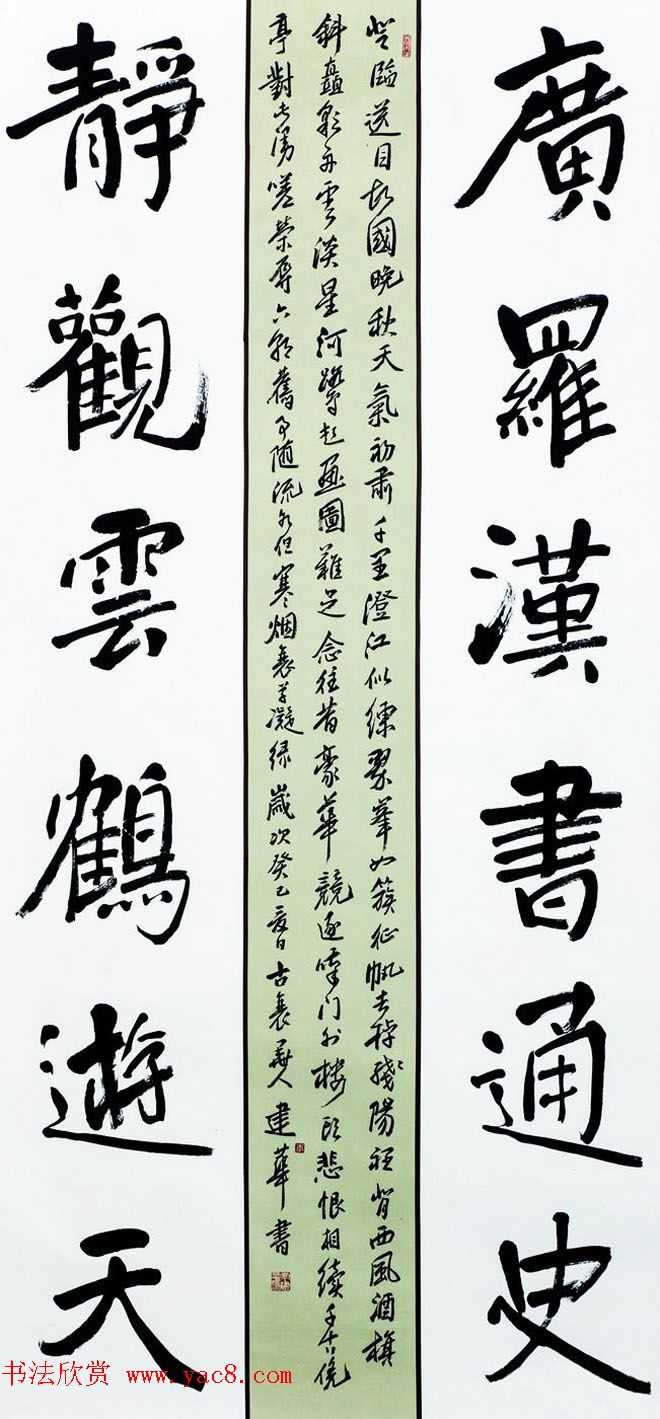 廣羅漢書通史
登臨送目故國晚秋天氣初肅千里澄江似練翠峯如簇征帆去棹殘陽裡背西風酒旗
斜矗彩舟雲淡星河鷺起畫圖難足念往昔豪華競逐嘆门外楼头悲恨相續千古凭
高對此漫嗟榮辱六朝舊事随流水但寒烟衰草凝緑歲次癸巳夏日古襄人建華書
靜觀雲鶴遊天
书法欣赏 www.yac8.com